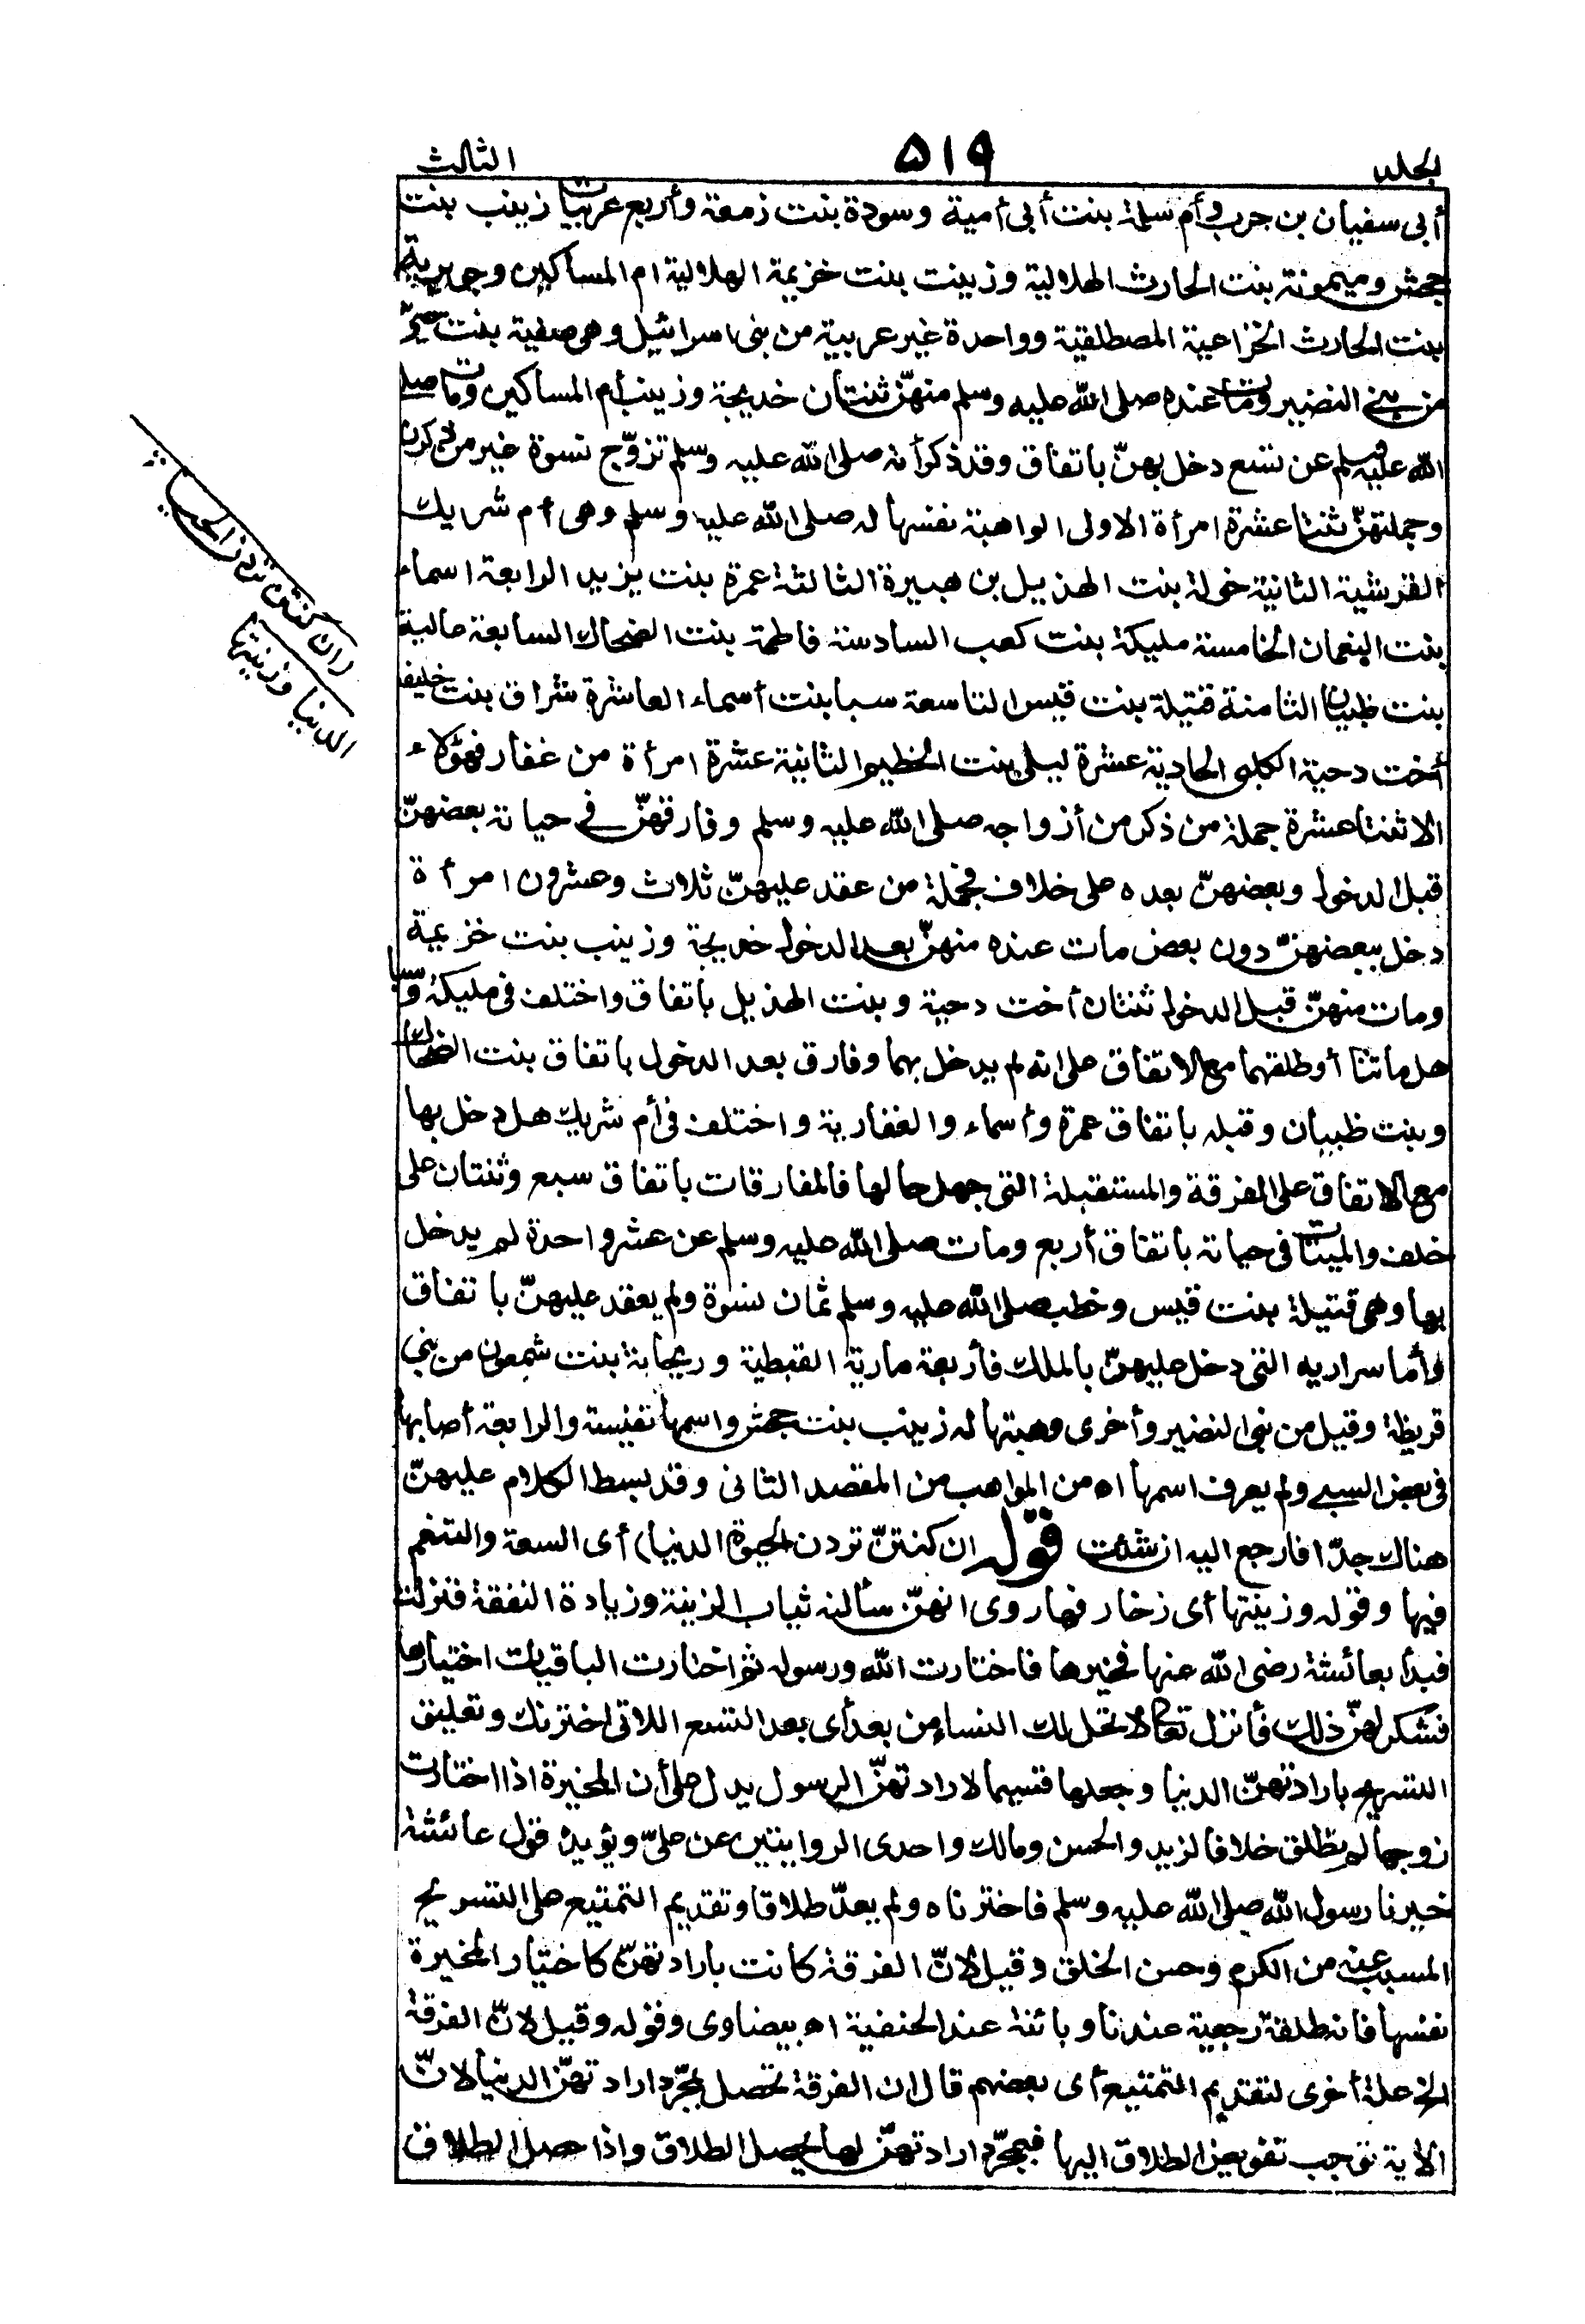 الجلد ٥١٩ الثالث
أبى سفيان بن حرب وأم سلمة بنت أبى أمية وسودة بنت زمعة وأربع عربيات زينب بنت
جحش وميمونة بنت الحارث الهلالية وزينب بنت خزيمة الهلالية ام المساكين وجويرية
بنت الحارث الخزاعية المصطلقية وواحدة غير عربية من بنى اسرائيل وهى صفية بنت حيى
من بنى النضير ومات عنده صلى الله عليه وسلم منهنّ ثنتان خديجة وزينب أم المساكين ومات صلى
الله عليه وسلم عن تسع دخل بهنّ باتفاق وقد ذكر أنه صلى الله عليه وسلم تزوّج نسوة غير من ذكرن
وجملتهنّ ثنتا عشرة امرأة الاولى الواهبة نفسها له صلى الله عليه وسلم وهى أم شريك
القرشية الثانية خولة بنت الهذيل بن هبيرة الثالثة عمرة بنت يزيد الرابعة اسماء
بنت النعمان الخامسة مليكة بنت كعب السادسة فاطمة بنت الضحاك السابعة عالية
بنت ظبيان الثامنة قتيلة بنت قيس التاسعة سبا بنت أسماء العاشرة شراق بنت خليفة
أخت دحية الكلبى الحادية عشرة ليلى بنت الخطيم الثانية عشرة امرأة من غفار فهؤلاء
الاثنتا عشرة جملة من ذكر من أزواجه صلى الله عليه وسلم وفارقهنّ فى حياته بعضهنّ
قبل الدخول وبعضهنّ بعده على خلاف فجملة من عقد عليهنّ ثلاث وعشرون امرأة
دخل ببعضهنّ دون بعض مات عنده منهنّ بعد الدخول خديجة وزينب بنت خزيمة
ومات منهنّ قبل الدخول ثنتان أخت دحية وبنت الهذيل باتفاق واختلف فى مليكة وسبا
هل ماتتا أو طلقهما مع الاتفاق على انه لم يدخل بهما وفارق بعد الدخول باتفاق بنت الضحاك
وبنت ظبيان وقبله باتفاق عمرة وأسماء والغفارية واختلف فى أم شريك هل دخل بها
مع الاتفاق على الفرقة والمستقبلة التى جهل حالها فالمفارقات باتفاق سبع وثنتان على
خلف والميتات فى حياته باتفاق أربع ومات صلى الله عليه وسلم عن عشر واحدة لم يدخل
بها وهى قتيلة بنت قيس وخطب صلى الله عليه وسلم ثمان نسوة ولم يعقد عليهنّ باتفاق
وأما سراريه التى دخل عليهنّ بالملك فأربعة مارية القبطية وريحانة بنت شمعون من بنى
قريظة وقيل من بنى النضير وأخرى وهبتها له زينب بنت جحش واسمها نفيسة والرابعة أصابها
فى بعض السبى ولم يعرف اسمها اه من المواهب من المقصد الثانى وقد بسط الكلام عليهنّ
هناك جدّا فارجع اليه ان شئت قوله ان كنتنّ تردن الحيوة الدنيا) أى السعة والتنعم
فيها وقوله وزينتها أى زخارفها روى انهنّ سألنه ثياب الزينة وزيادة النفقة فنزلت
فبدأ بعائشة رضى الله عنها فخيرها فاختارت الله ورسوله ثم اختارت الباقيات اختيارها
فشكر لهنّ ذلك فأنزل تعالى لا تحل لك النساء من بعد أى بعد التسع اللاتى اخترنك وتعليق
التسريح بارادتهنّ الدنيا وجعلها قسيما لارادتهنّ الرسول يدل على أن المخيرة اذا اختارت
زوجها لم تطلق خلافا لزيد والحسن ومالك واحدى الروايتين عن علىّ ويؤيده قول عائشة
خيرنا رسول الله صلى الله عليه وسلم فاخترناه ولم يعدّ طلاقا وتقديم التمتيع على التسريح
المسبب عنه من الكرم وحسن الخلق وقيل لانّ الفرقة كانت بارادتهنّ كاختيار المخيرة
نفسها فانه طلقة رجعية عندنا وبائنة عند الحنفية اه بيضاوى وقوله وقيل لانّ الفرقة
الخ علة أخرى لتقديم التمتيع أى بعضهم قال ان الفرقة تحصل بمجرّد ارادتهنّ الدنيا لانّ
الآية توجب تفويض الطلاق اليها فبمجرّد ارادتهنّ لها يحصل الطلاق واذا حصل الطلاق
(ان كنتن تردن الحيوة
الدنيا وزينتها